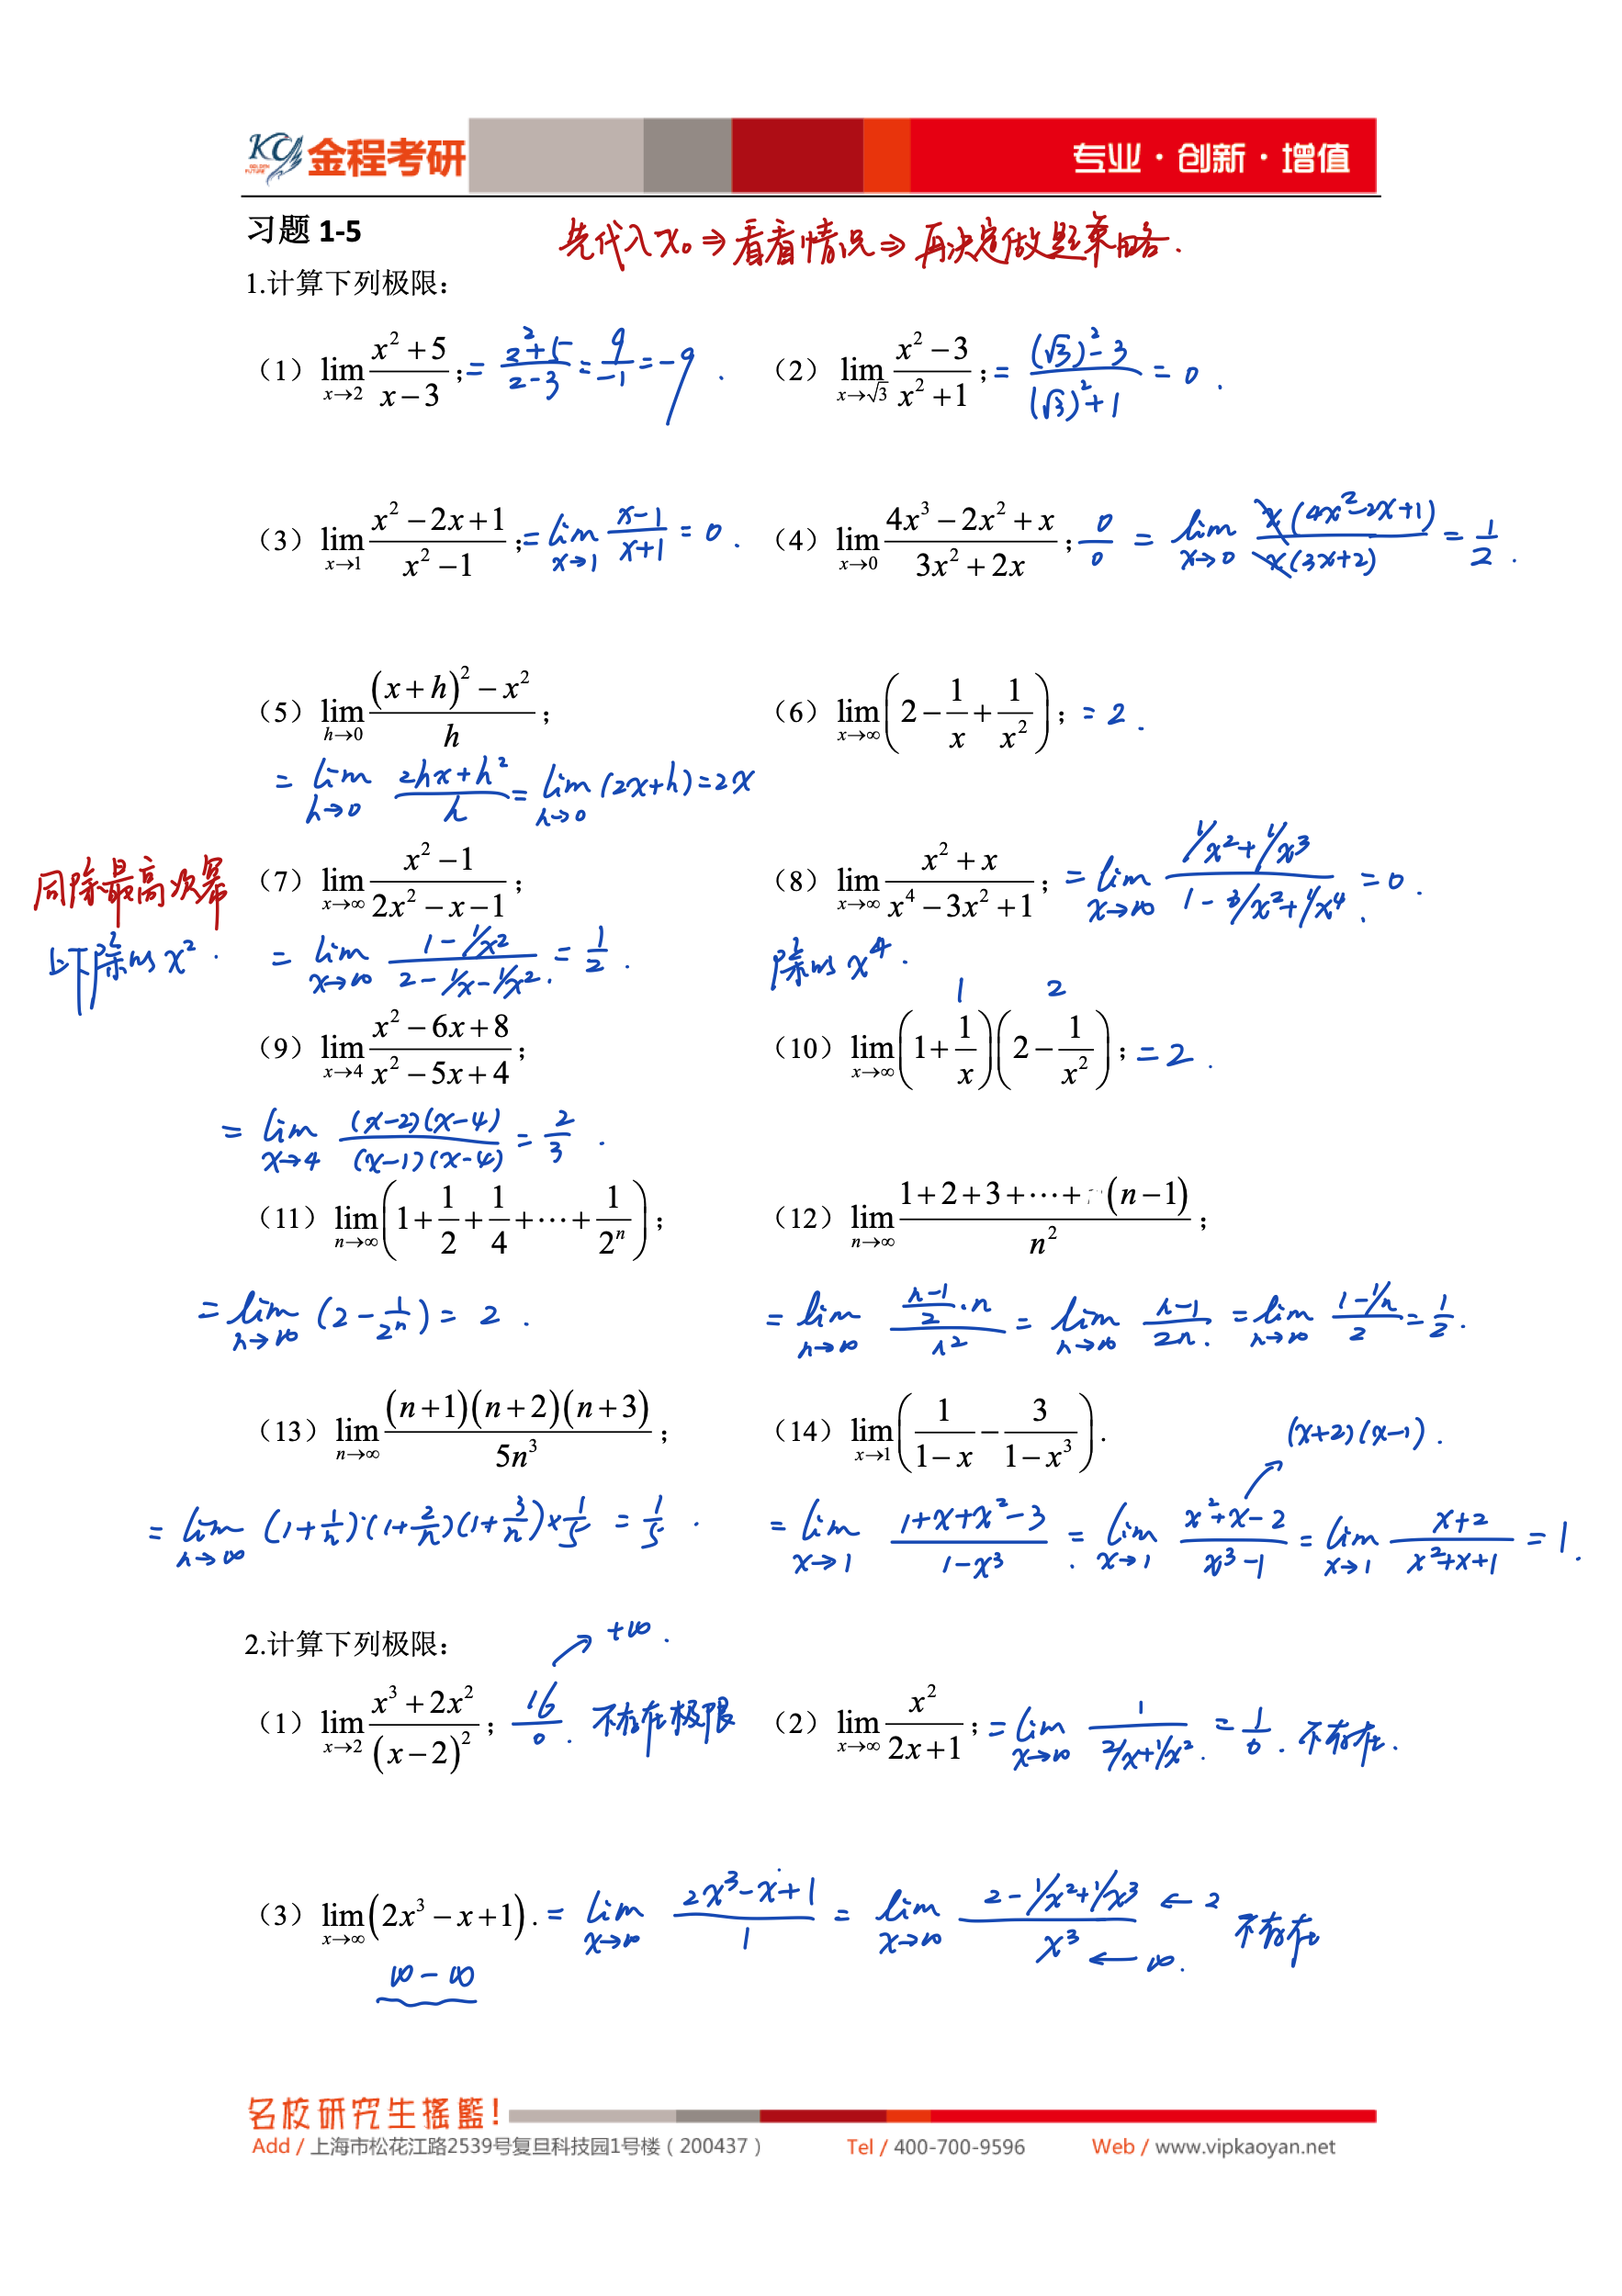 KC GOLDEN FUTURE 金程考研 专业·创新·增值
习题 1-5 先代入x₀⇒看看情况⇒再决定做题策略.
1.计算下列极限：
（1）lim_{x→2} (x²+5)/(x−3); = (2²+5)/(2-3) = 9/-1 = -9.
（2）lim_{x→√3} (x²−3)/(x²+1); = ((√3)²-3)/((√3)²+1) = 0.
（3）lim_{x→1} (x²−2x+1)/(x²−1); = lim_{x→1} (x-1)/(x+1) = 0.
（4）lim_{x→0} (4x³−2x²+x)/(3x²+2x); 0/0 = lim_{x→0} x(4x²-2x+1)/x(3x+2) = 1/2.
（5）lim_{h→0} ((x+h)²−x²)/h;
（6）lim_{x→∞} (2−1/x+1/x²); = 2.
= lim_{h→0} (2hx+h²)/h = lim_{h→0} (2x+h) = 2x
同除最高次幂 （7）lim_{x→∞} (x²−1)/(2x²−x−1);
（8）lim_{x→∞} (x²+x)/(x⁴−3x²+1); = lim_{x→∞} (1/x²+1/x³)/(1-3/x²+1/x⁴) = 0.
上下除以x². = lim_{x→∞} (1-1/x²)/(2-1/x-1/x²) = 1/2.
除以x⁴.
（9）lim_{x→4} (x²−6x+8)/(x²−5x+4);
1 2
（10）lim_{x→∞} (1+1/x)(2−1/x²); = 2.
= lim_{x→4} (x-2)(x-4)/(x-1)(x-4) = 2/3.
（11）lim_{n→∞} (1+1/2+1/4+⋯+1/2ⁿ);
（12）lim_{n→∞} (1+2+3+⋯+(n−1))/n²;
= lim_{n→∞} (2-1/2ⁿ) = 2.
= lim_{n→∞} ((n-1)/2·n)/n² = lim_{n→∞} (n-1)/2n. = lim_{n→∞} (1-1/n)/2 = 1/2.
（13）lim_{n→∞} (n+1)(n+2)(n+3)/5n³;
（14）lim_{x→1} (1/(1−x)−3/(1−x³)).
(x+2)(x-1).
= lim_{n→∞} (1+1/n)·(1+2/n)(1+3/n)×1/5 = 1/5.
= lim_{x→1} (1+x+x²-3)/(1-x³) = lim_{x→1} (x²+x-2)/(x³-1) = lim_{x→1} (x+2)/(x²+x+1) = 1.
2.计算下列极限： +∞.
（1）lim_{x→2} (x³+2x²)/(x−2)²; 16/0. 不存在极限
（2）lim_{x→∞} x²/(2x+1); = lim_{x→∞} 1/(2/x+1/x²). = 1/0. 不存在.
（3）lim_{x→∞} (2x³−x+1). = lim_{x→∞} (2x³-x+1)/1 = lim_{x→∞} (2-1/x²+1/x³)/x³ ← 2 ← ∞. 不存在
∞-∞
名校研究生摇篮!
Add / 上海市松花江路2539号复旦科技园1号楼（200437） Tel / 400-700-9596 Web / www.vipkaoyan.net